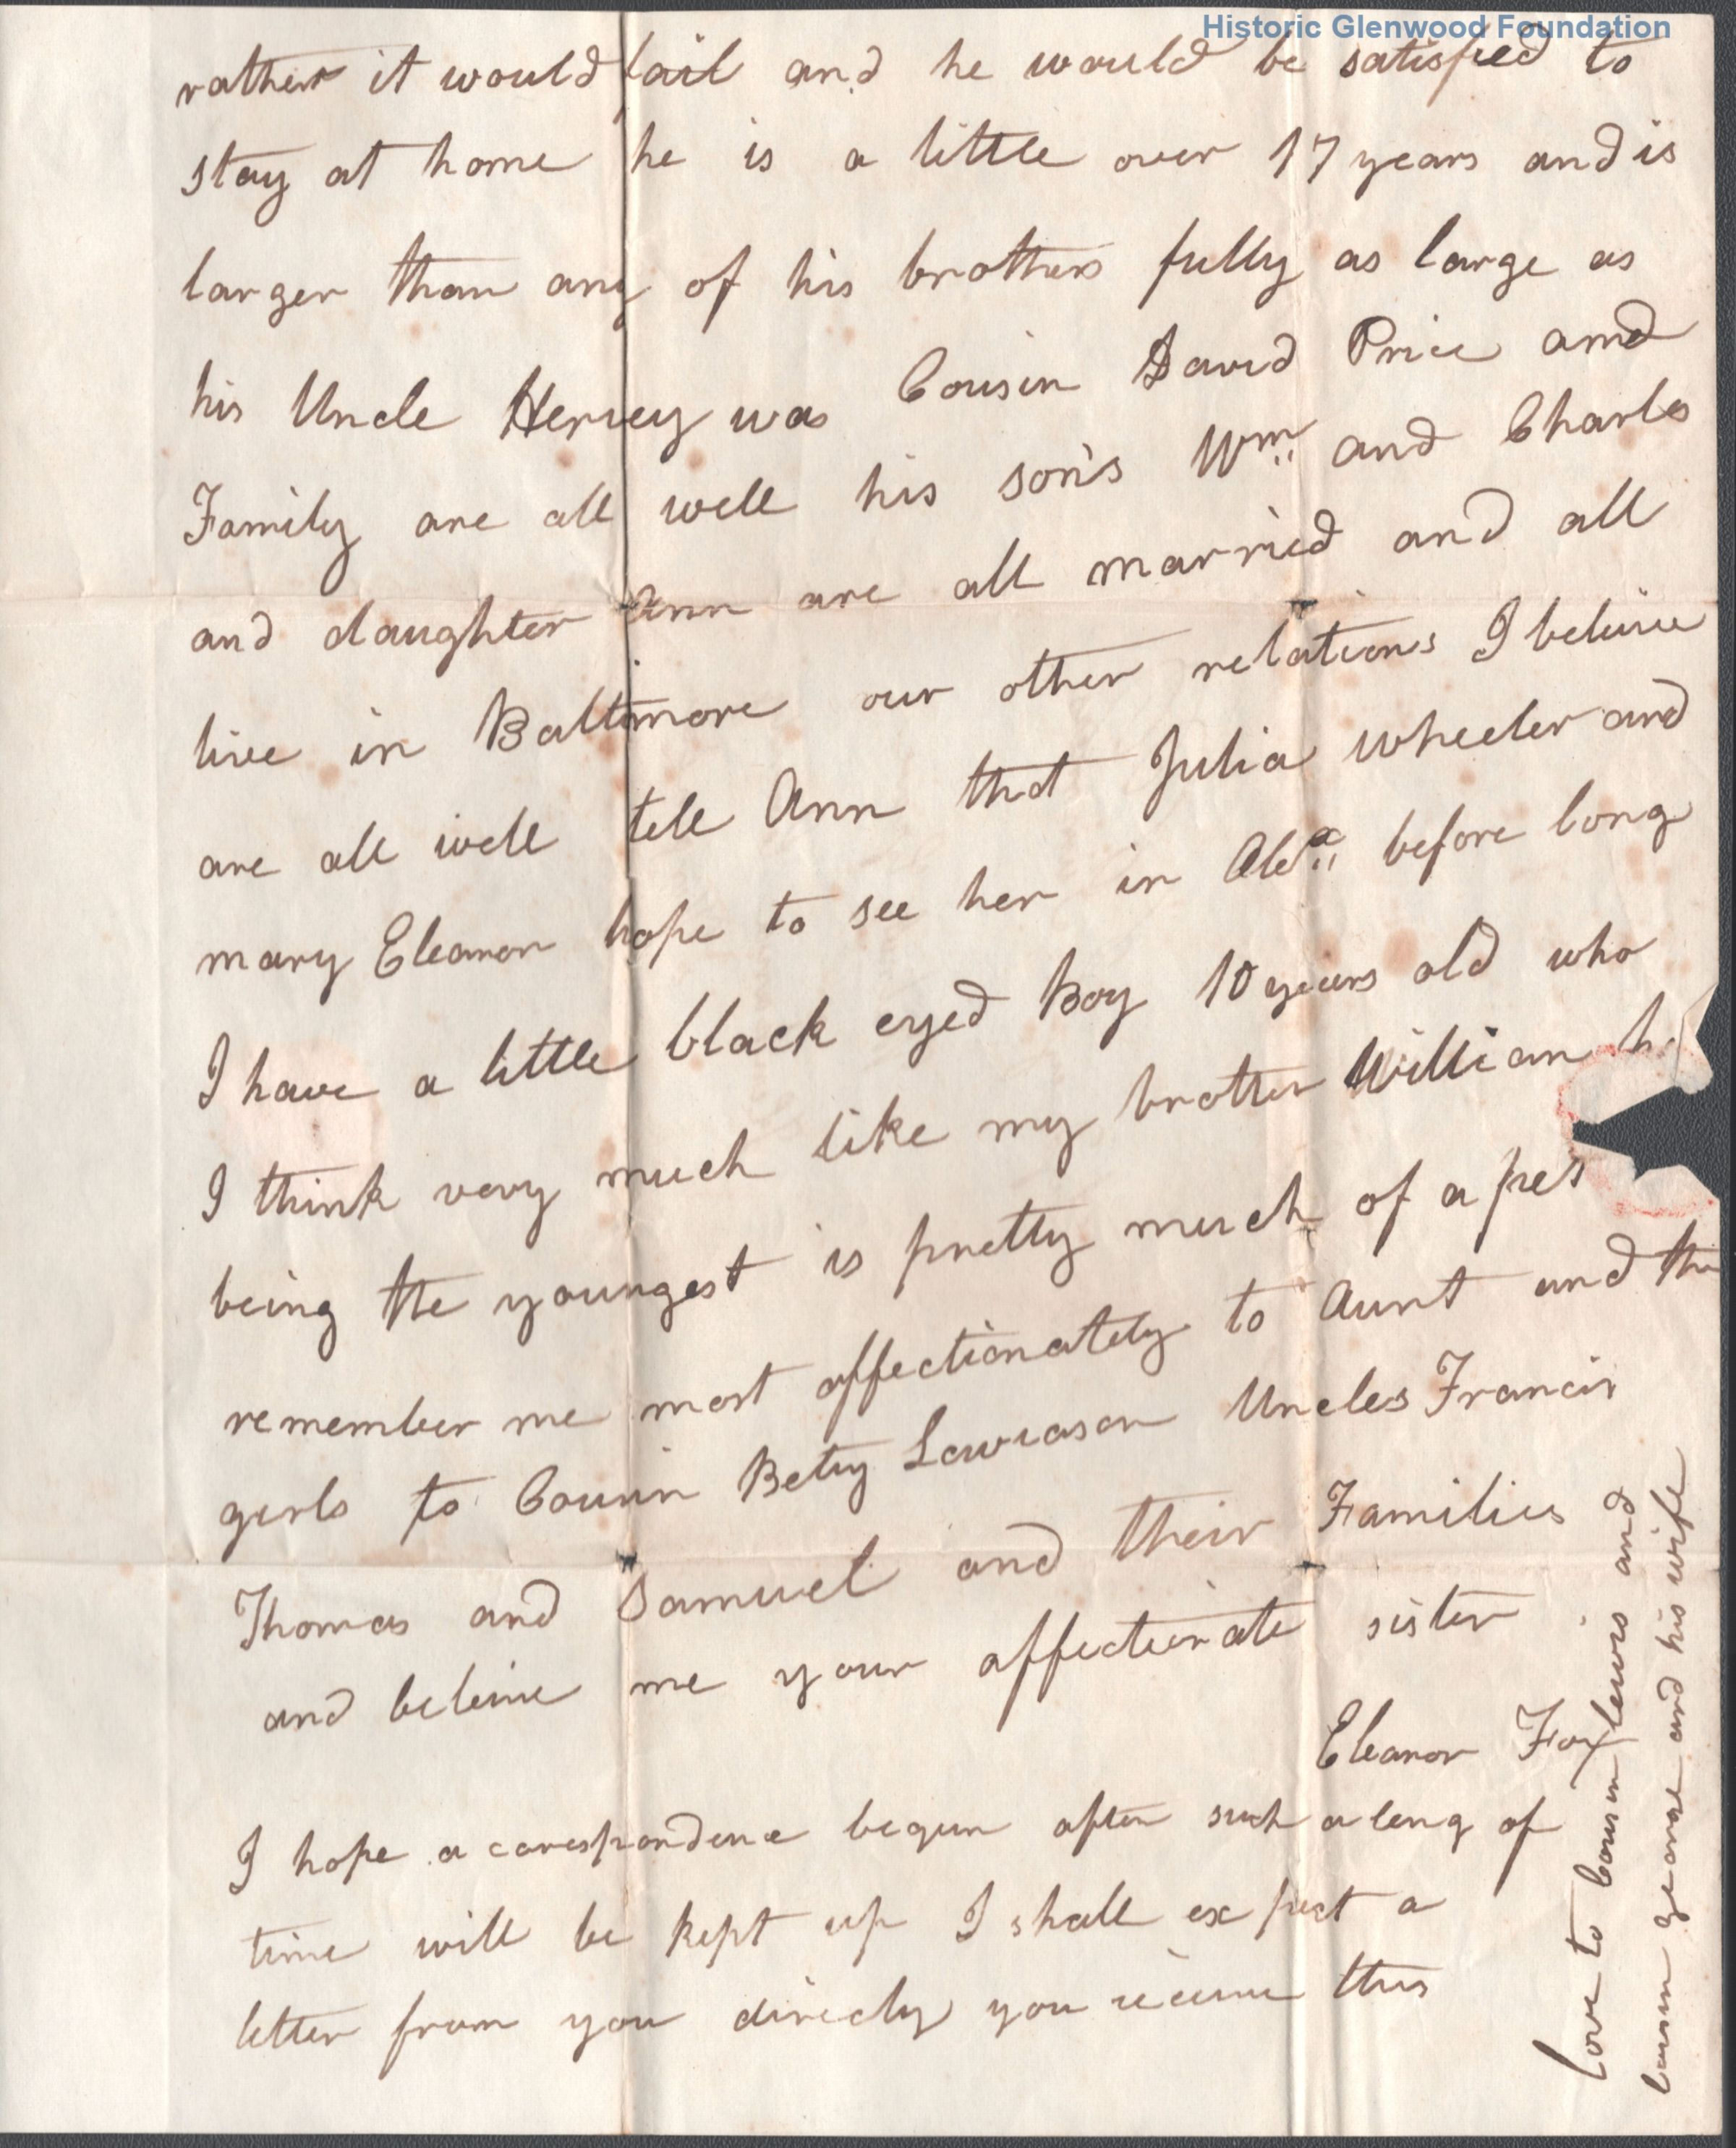 Historic Glenwood Foundation
rather it would fail and he would be satisfied to
stay at home he is a little over 17 years and is
larger than any of his brothers fully as large as
his Uncle Hervey was Cousin David Price and
Family are all well his son's Wm and Charles
and daughter Ann are all married and all
live in Baltimore our other relations I believe
are all well tell Ann that Julia wheeler and
mary Eleanor hope to see her in Alexa before long
I have a little black eyed Boy 10 years old who
I think very much like my brother William he
being the youngest is pretty much of a pet
remember me most affectionately to Aunt and the
girls to Cousin Betsy Lowrason Uncles Francis
Thomas and Samuel and their Families
and believe me your affectionate sister
Eleanor Fox
I hope a corespondence begun after such a leng of
time will be kept up I shall expect a
letter from you direcly you receive this
love to Cousin lewis and
Cousin george and his wife